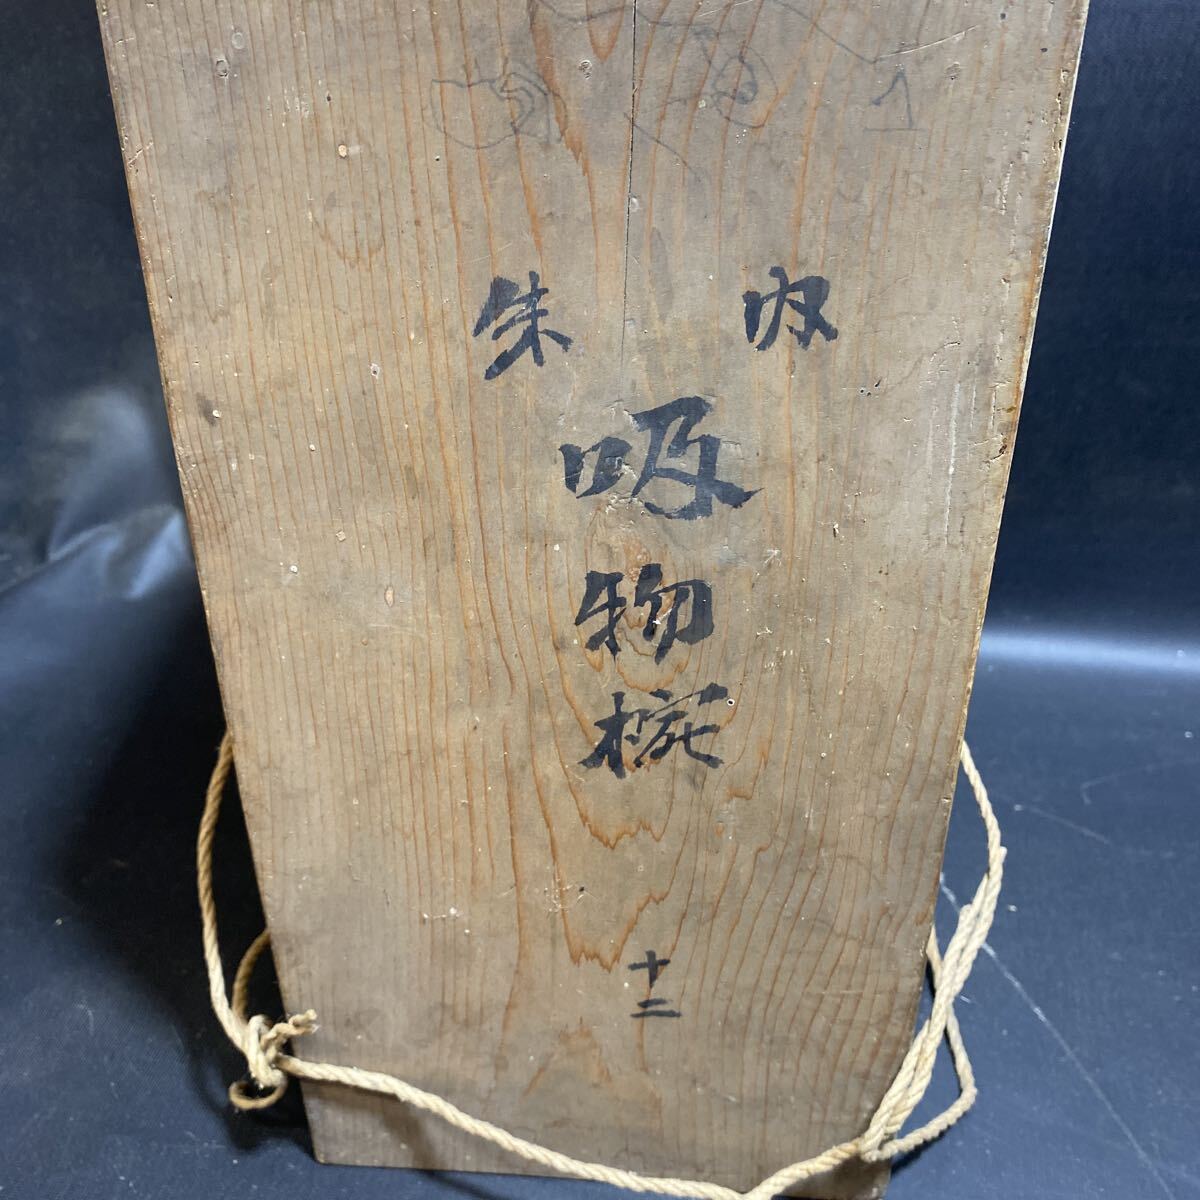 内朱
吸物椀
十二